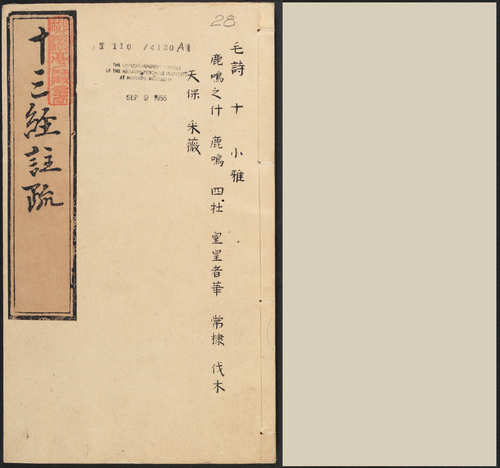 28
毛詩 十 小雅
鹿鳴之什 鹿鳴 四牡 皇皇者華 常棣 伐木
天保 采薇
T 110 / 4120A
THE CHINESE-JAPANESE LIBRARY
OF THE HARVARD-YENCHING INSTITUTE
AT HARVARD UNIVERSITY
SEP 9 1955
十三經註疏